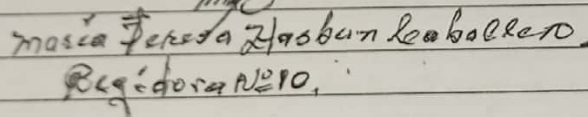 María Teresa Hasbun Leaballero.
Regidora Nº 10.